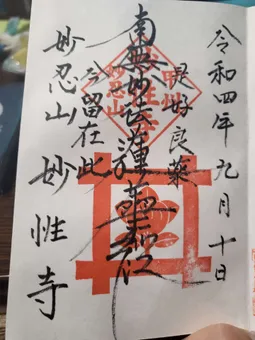 令和四年九月十日
是好良薬
南無妙法蓮華経
今留在此
妙忍山 妙性寺
甲州
妙忍山